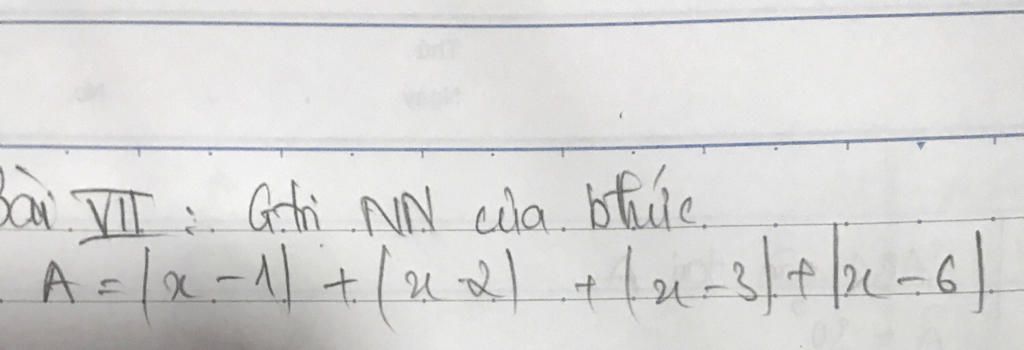 Bài VII : Gtri NN của bthức
A = |x - 1| + |x - 2| + |x - 3| + |x - 6|